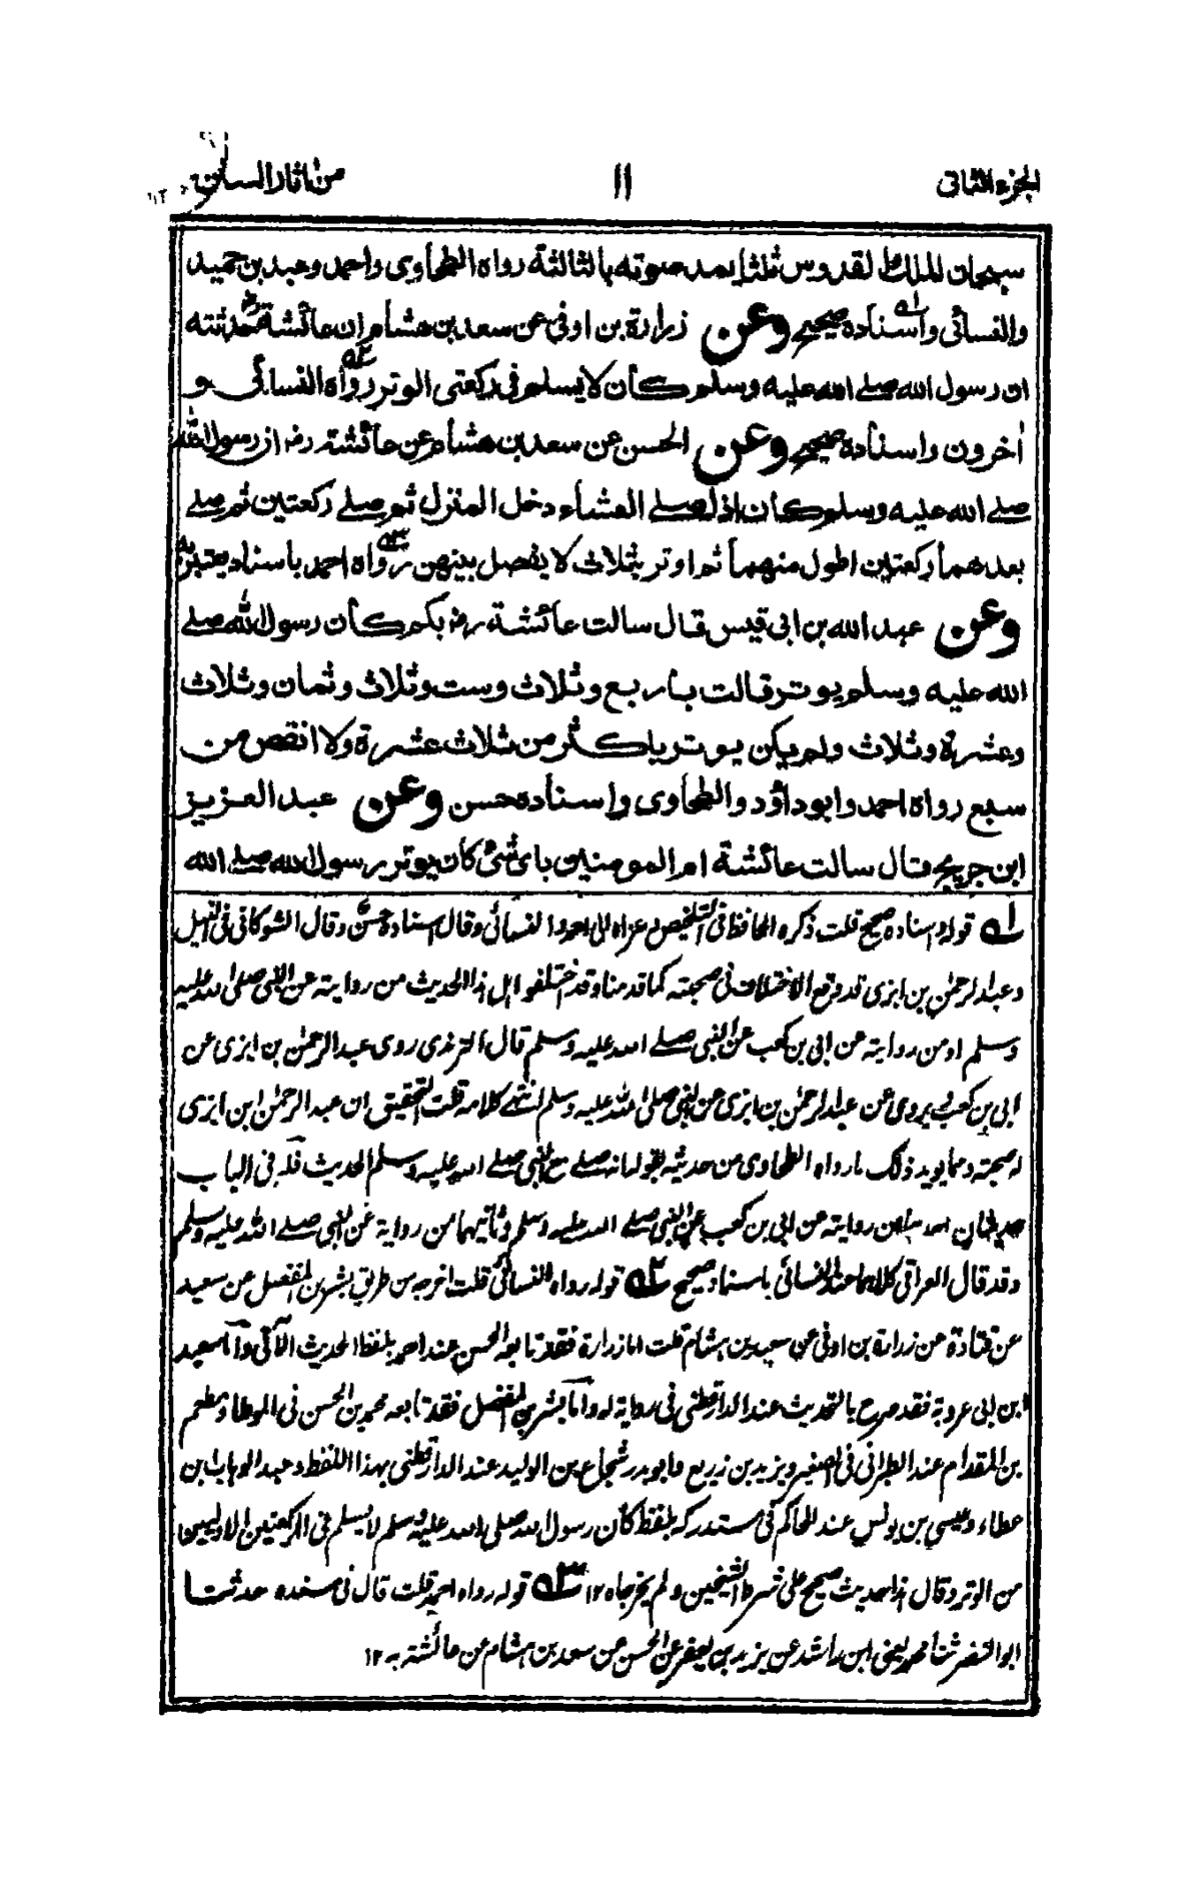 الجزء الثانى
١١
من اثار السنن
سبحان الملك القدوس ثلثا يمد صوته بالثالثة رواه الطحاوى واحمد وعبد بن حميد
والنسائى واسناده صحيح وعن زرارة بن اوفى عن سعد بن هشام ان عائشة رض حدثته
ان رسول الله صلے الله عليه وسلم كان لا يسلم فى ركعتى الوتر رواه النسائى و
اخرون واسناده صحيح وعن الحسن عن سعد بن هشام عن عائشة رض ان رسول الله
صلے الله عليه وسلم كان اذا صلے العشاء دخل المنزل ثم صلے ركعتين ثم صلے
بعدهما ركعتين اطول منهما ثم اوتر بثلاث لا يفصل بينهن رواه احمد باسناد يعتبر به
وعن عبد الله بن ابى قيس قال سالت عائشة رض بكم كان رسول الله صلے
الله عليه وسلم يوتر قالت باربع وثلاث وست وثلاث وثمان وثلاث
وعشرة وثلاث ولم يكن يوتر باكثر من ثلاث عشرة ولا انقص من
سبع رواه احمد وابو داؤد والطحاوى واسناده حسن وعن عبد العزيز
ابن جريج قال سالت عائشة ام المومنين باى شئ كان يوتر رسول الله صلے الله
١ قوله واسناده صحيح قلت ذكره الحافظ فى التلخيص وعزاه الى احمد والنسائى وقال اسناده حسن وقال الشوكانى فى النيل
وعبد الرحمٰن بن ابزى قد وقع الاختلاف فى صحبته كما قدمنا وقد اختلفوا هل هذا الحديث من روايته عن النبى صلى الله عليه
وسلم او من روايته عن ابى بن كعب عن النبى صلے الله عليه وسلم قال الترمذى روى عبد الرحمٰن بن ابزى عن
ابى بن كعب ويروى عن عبد الرحمٰن بن ابزى عن النبى صلى الله عليه وسلم انتهى كلامه قلت التحقيق ان عبد الرحمٰن ابن ابزى
له صحبته ومما يويد ذلك ما رواه الطحاوى من حديثه بلفظ انه صلے مع النبى صلے الله عليه وسلم الحديث فله فى الباب
حديثان احدهما من روايته عن ابى بن كعب عن النبى صلے الله عليه وسلم وثانيهما من رواية عن النبى صلے الله عليه وسلم
وقد قال العراقى كلاهما عند النسائى باسناد صحيح ٢ قوله رواه النسائى قلت اخرجه من طريق بشر بن المفضل عن سعيد
عن قتادة عن زرارة بن اوفى عن سعد بن هشام قلت اما زرارة فقد تابعه الحسن عند احمد بلفظ الحديث الآتى واما سعيد
ابن ابى عروبة فقد صرح بالتحديث عند الدارقطنى فى رواية له واما بشر بن المفضل فقد تابعه محمد بن الحسن فى الموطا ومطعم
بن المقدام عند الطبرانى فى الصغير ويزيد بن زريع وابو بدر شجاع بن الوليد عند الدارقطنى بهذا اللفظ وعبد الوهاب ابن
عطاء وعيسى بن يونس عند الحاكم فى مستدركه بلفظ كان رسول الله صلى الله عليه وسلم لا يسلم فى الركعتين الاوليين
من الوتر وقال هذا حديث صحيح على شرط الشيخين ولم يخرجاه ١٢ ٣ قوله رواه احمد قلت قال فى مسنده حدثنا
ابو النضر ثنا محمد يعنى ابن راشد عن يزيد بن يعفر عن الحسن عن سعد بن هشام عن عائشة به ١٢